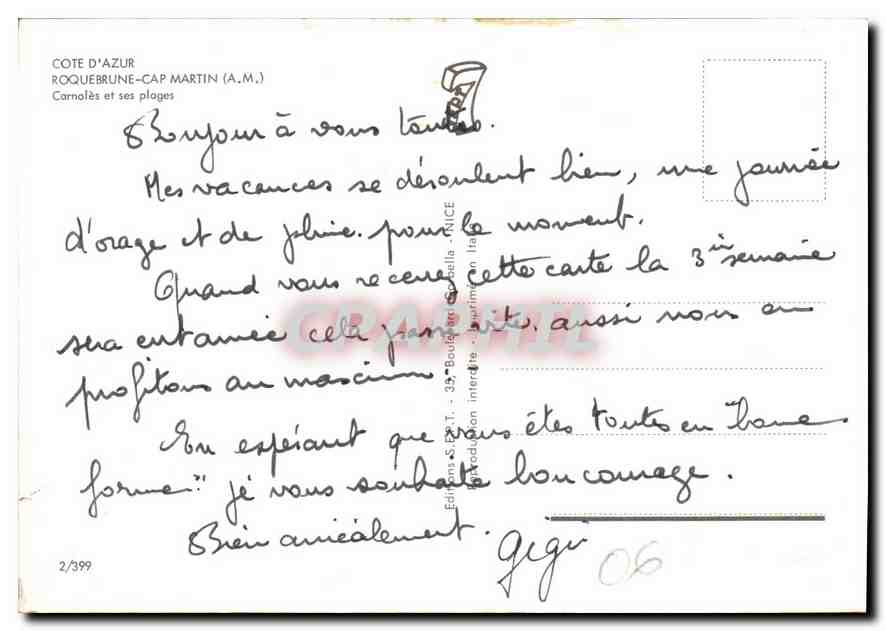 COTE D'AZUR
ROQUEBRUNE-CAP MARTIN (A.M.)
Carnolès et ses plages
Bonjour à vous toutes.
Mes vacances se déroulent bien, une journée
d'orage et de pluie pour le moment.
Quand vous recevrez cette carte la 3ième semaine
sera entamée cela passe vite. aussi nous en
profitons au maximum.
En espérant que vous êtes toutes en "bonne
forme" je vous souhaite bon courage.
Bien amicalement.
Gégé
06
2/399
Editions S.E.P.T. - 39, Boulevard - NICE
Reproduction interdite - Imprimé en Italie
CPAPHIL